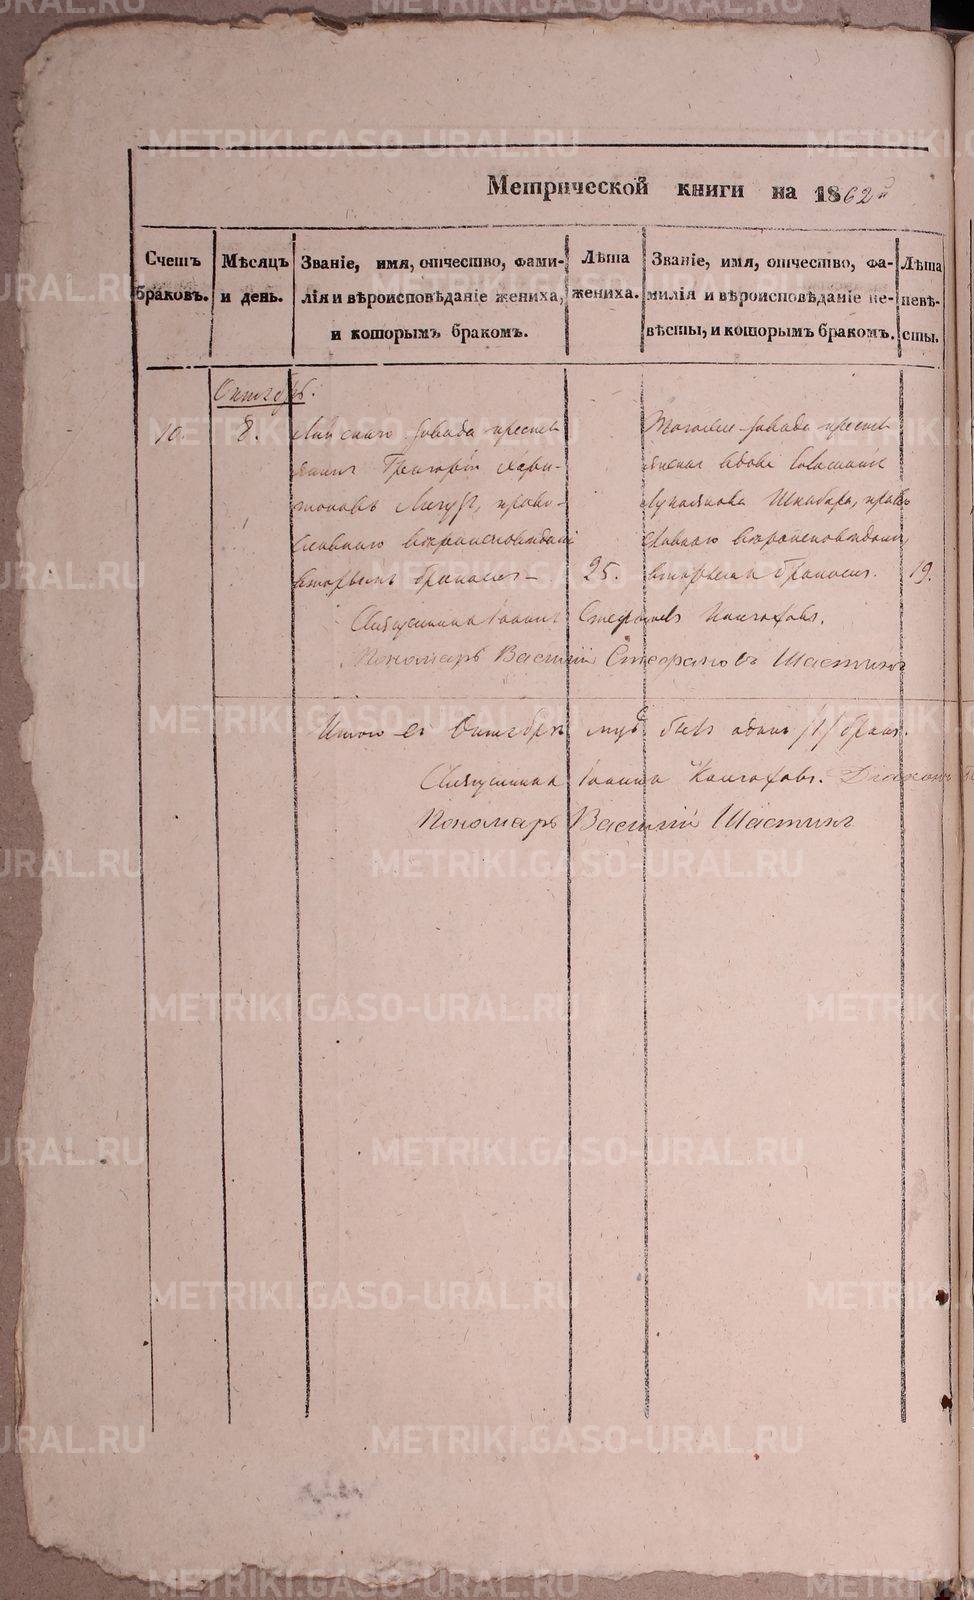 Метрической книги на 1862й
Счетъ браковъ.
Мѣсяцъ и день.
Званіе, имя, отчество, фами-
лія и вѣроисповѣданіе жениха,
и которымъ бракомъ.
Лѣта
жениха.
Званіе, имя, отчество, фа-
милія и вѣроисповѣданіе не-
вѣсты, и которымъ бракомъ.
Лѣта
невѣ-
сты.
Октябрь.
10.
8.
завода крестья
янинъ Григорій Хари-
тоновъ право-
славнаго вѣроисповѣданія
вторымъ бракомъ
25.
Тогоже завода крестья
янская вдова
право
славнаго вѣроисповѣданія
вторымъ бракомъ.
19.
Священникъ Іоаннъ Стефановъ
Пономарь Василій Стефановъ Шастинъ
Итого въ Октябрѣ былъ одинъ /1/ бракъ.
Священникъ Іоаннъ Діаконъ
Пономарь Василій Шастинъ
METRIKI.GASO-URAL.RU